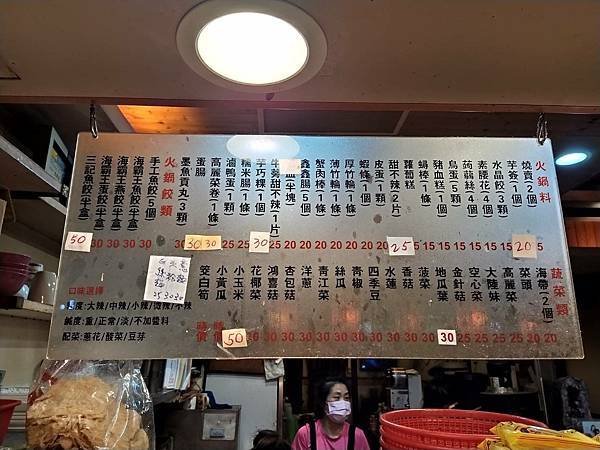 火鍋料
燒賣(2個)
芋簽(1個)
水晶餃(3顆)
素腰花(4個)
蒟蒻絲(4個)
鳥蛋(5顆)
豬血糕(1個)
蟳棒(1條)
蘿蔔糕
甜不辣(2片)
皮蛋(1顆)
蝦條(1個)
厚竹輪(1條)
薄竹輪(1條)
蟹肉棒(1條)
鑫鑫腸(5個)
芋巧粿(1個)
糯米腸(1條)
滷鴨蛋(1顆)
高麗菜卷(1條)
蛋腸
墨魚貢丸(3顆)
火鍋餃類
手工魚餃(5個)
海霸王魚餃(半盒)
海霸王燕餃(半盒)
海霸王蛋餃(半盒)
三記魚餃(半盒)
50 30 30 30 30 30 30 25 25 30 25 25 20 20 20 20 20 20 20 25 15 15 15 15 15 15 20 5
蔬菜類
海帶(2個)
菜頭
高麗菜
大陸妹
空心菜
金針菇
地瓜葉
菠菜
香菇
水蓮
四季豆
青椒
絲瓜
青江菜
洋蔥
杏包菇
鴻喜菇
花椰菜
小玉米
小黃瓜
筊白筍
時價
50 30 30 30 30 30 30 30 30 30 30 30 30 30 20 20 20
口味選擇
辣度:大辣/中辣/小辣/微辣/不辣
鹹度:重/正常/淡/不加醬料
配菜:蔥花/酸菜/豆芽